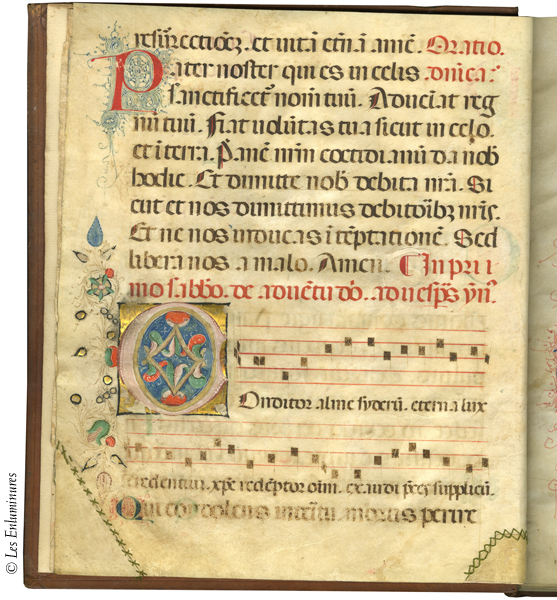 resurrectioēz. et uitā etn̄a amē. Oratio.
Pater noster qui es in celis dn̄ica:
sanctificet᷑ nom̄ tuū. Adueniat reg
nū tuū. Fiat uolūtas tua sicut in celo.
et ī terra. Panē nr̄m cotidianū da nob̄
hodie. Et dimitte nob̄ debita nr̄a. Si
cut et nos dimittimus debitorib̄z nr̄is.
Et ne nos inducas ī tēptationē. Sed
libera nos a malo. Amen. In pri
mo sabbō. de aduētu dō. ad uesp̄s yn̄.
Conditor alme syderū. eterna lux
credentiū. xp̄e redēptor oīm. exaudi p̄ces supplicū.
Qui condolens interitu mortis perire
© Les Enluminures